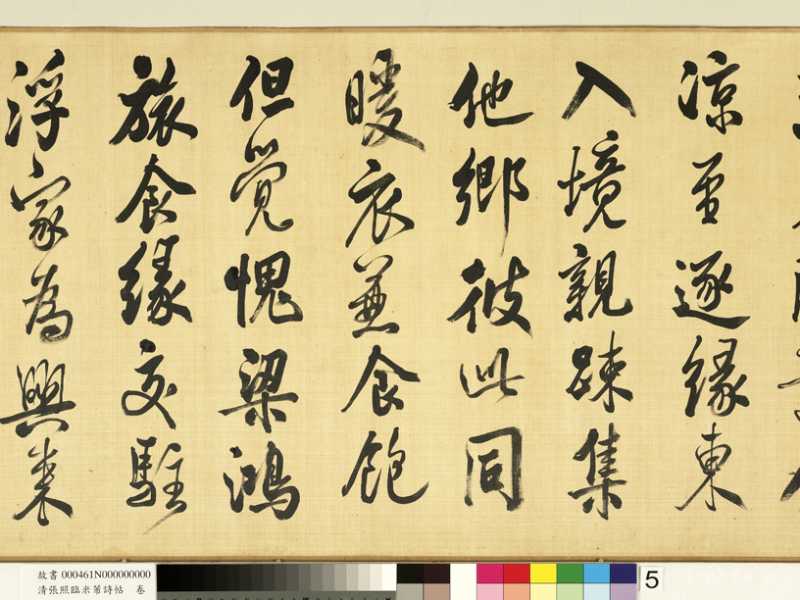 涼至逐緣東
入境親疎集
他鄉彼此同
暖衣兼食飽
但覺愧梁鴻
旅食緣交駐
浮家為興来
故書 000461N000000000
清張照臨米芾詩帖 卷
5